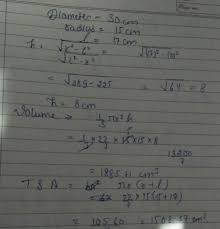 Diameter - 30 cm
radius = 15 cm
l = 17 cm
h = √l² - r² = √(17)² - 15²
= √289 - 225 = √64 = 8
h = 8 cm
Volume = 1/3 πr²h
= 1/3 × 22/7 × 15 × 15 × 8
13200
7
= 1885.71 cm³
T.S.A = πr (r + l)
= 22/7 15 (15 + 17)
= 10560
= 1508.57 cm²